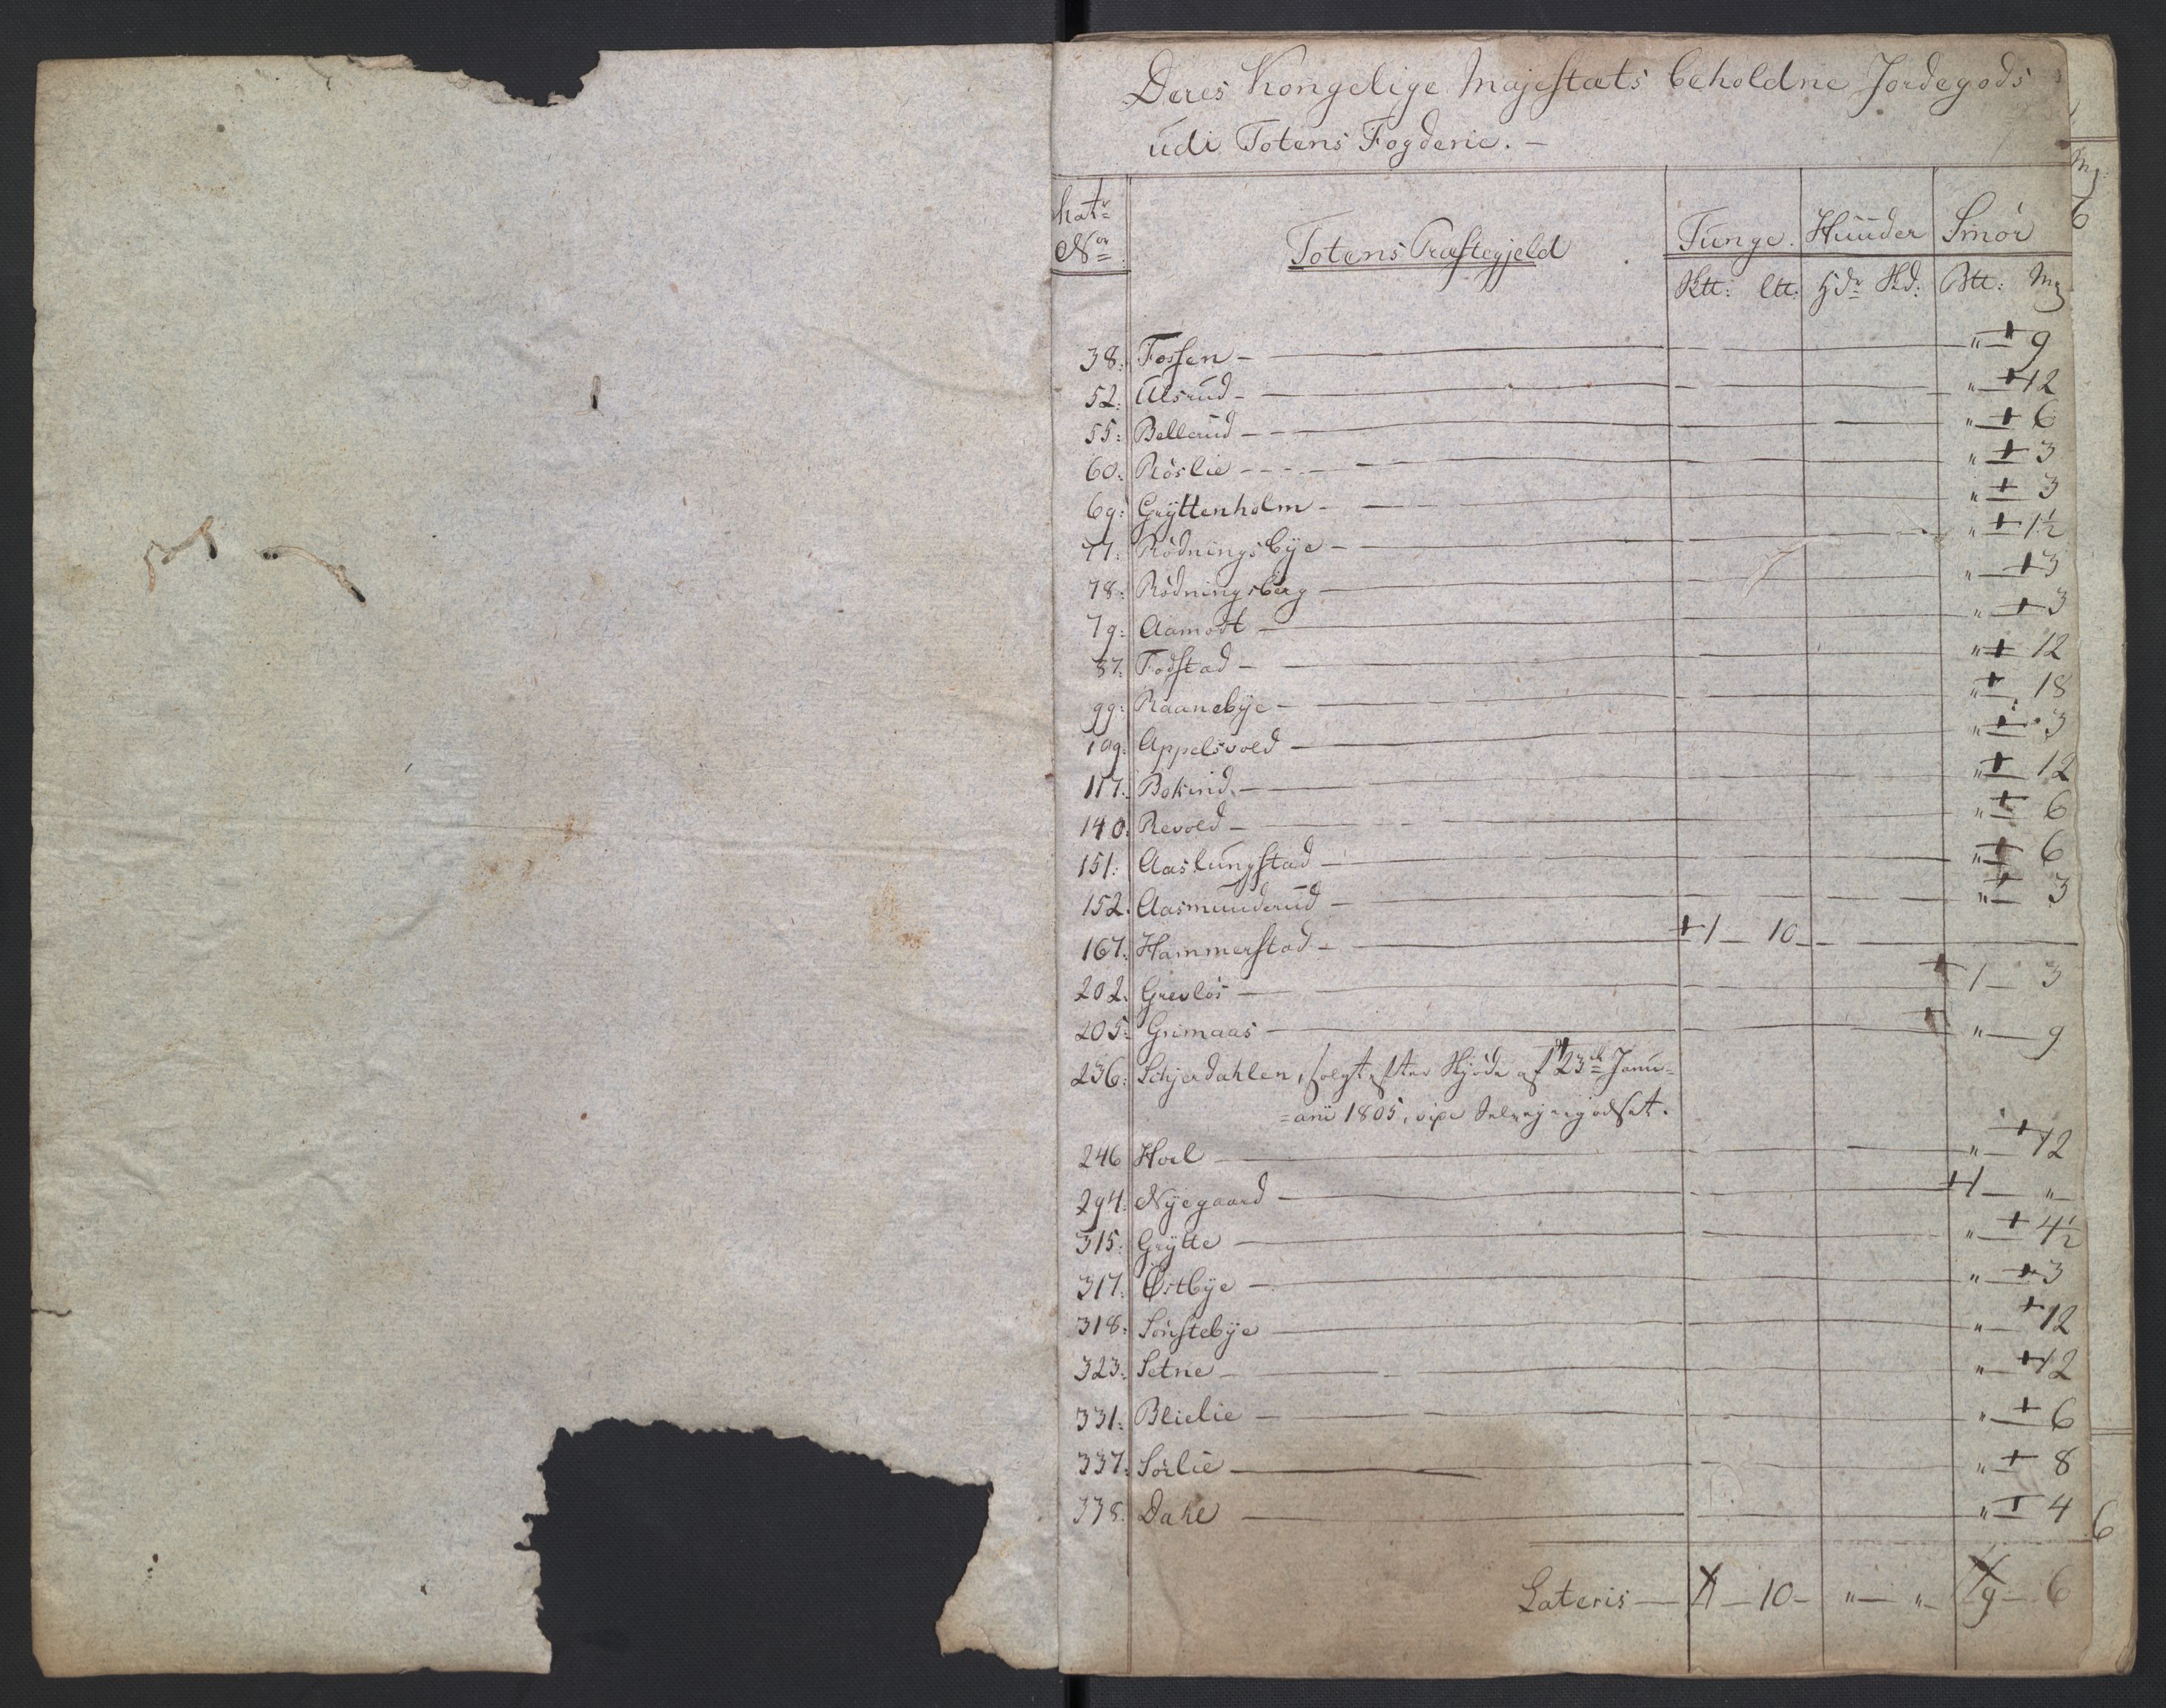 Deres Kongelige Majestæts beholdne Jordegods
udi Totens Fogderie. —
Matr No Totens Præstegjeld Tunge. Huuder Smör
Sktt: ltt: Hdr Skd: Btt: Mz
38: Fossen — " + 9
52: Alsrud — " + 12
55: Bellerud — " + 6
60: Röslie — " + 3
69: Gryttenholm — " + 3
77: Rödningsbye — " + 1½
78: Rödningsberg — " + 3
79: Aamodt — " + 3
87: Fodstad — " + 12
99: Raanebye — " + 18
109: Appelsvold — " + 3
117: Bokind — " + 12
140: Revold — " + 6
151: Aaslungstad — " + 6
152: Aasmunderud — " + 3
167: Hammerstad — + 1 — 10 —
202: Grevlös — + 1 — 3
205: Grimaas — " — 9
236: Schjerdahlen, solgt efter Skjöde af 23de Janu=
=arii 1805, vide Selvejergodset.
246 Hoel — " + 12
294: Nyegaard — + 1 — "
315: Grytte — " + 4½
317: Östbye — " + 3
318: Sönstebye — " + 12
323: Setne — " + 12
331: Blielie — " + 6
337: Sörlie — " + 8
338: Dahl — " + 4
Lateris — 1 — 10 — " — " — 9 — 6